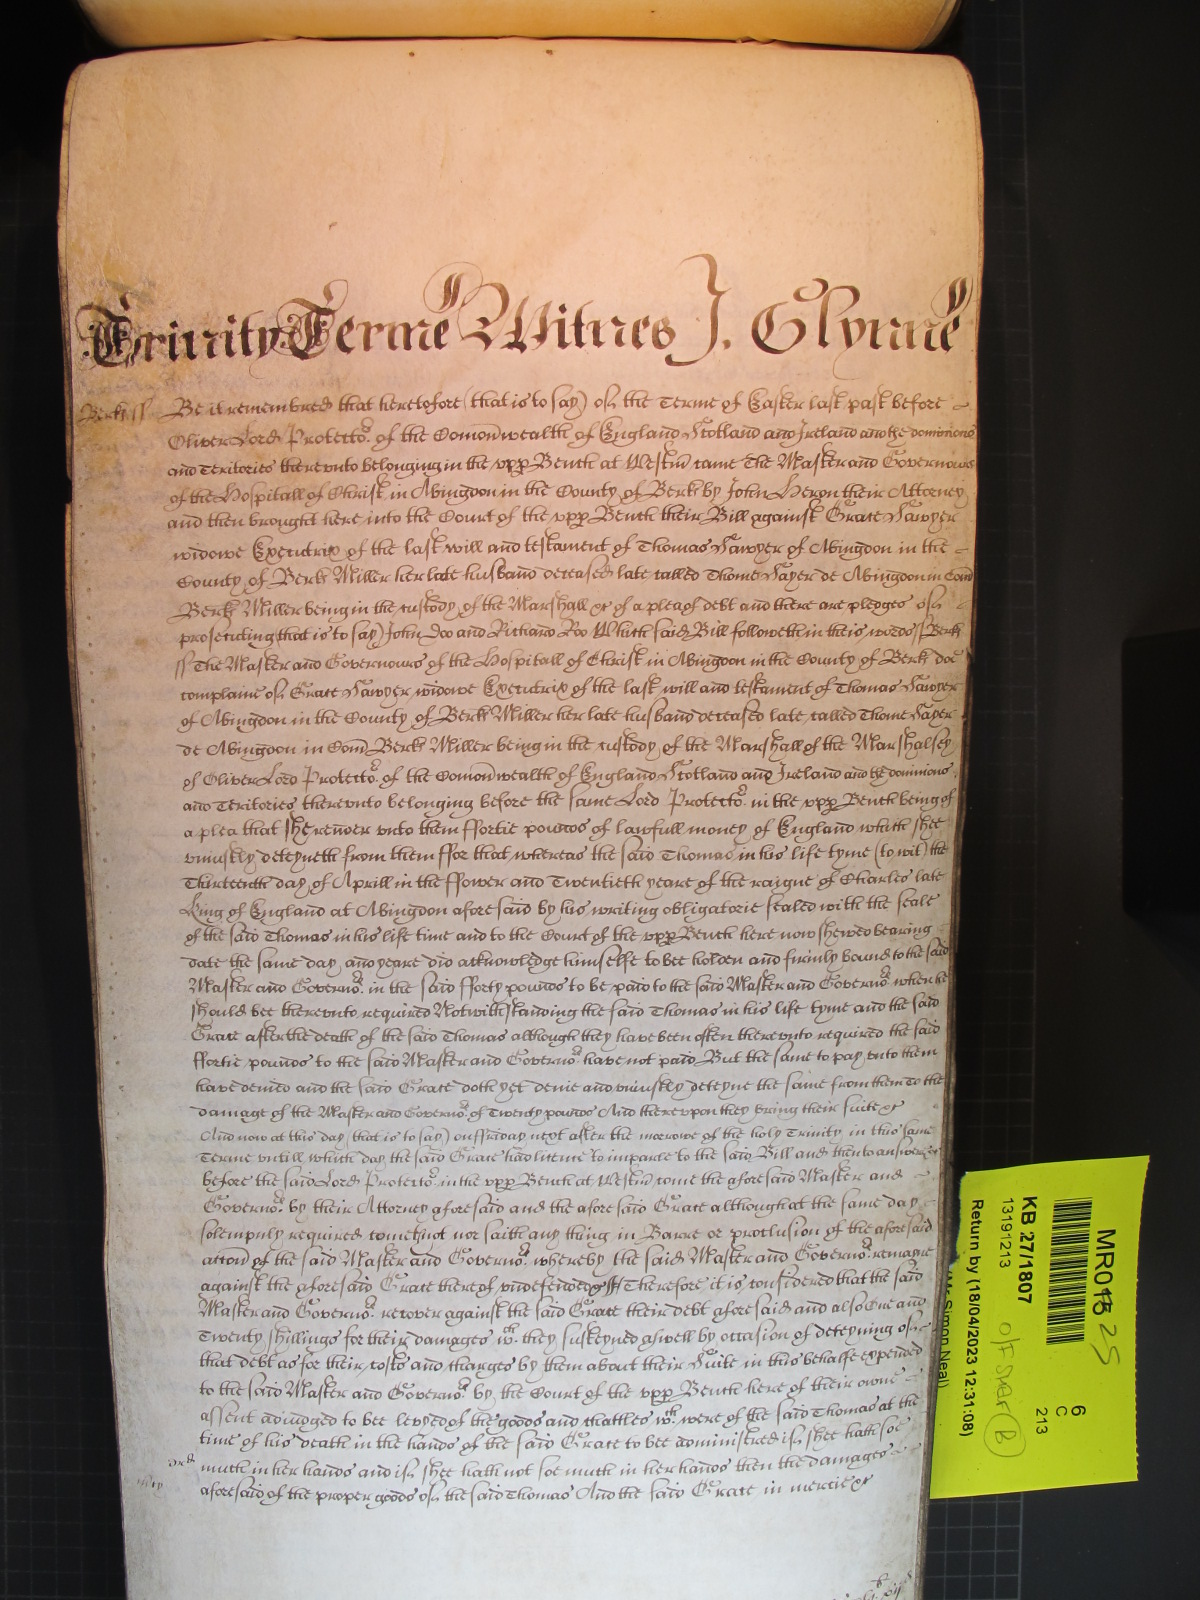 Trinity Terme Witnes J. Glynne
Berk ss Be it remembred that heretofore (that is to say) of the Terme of Easter last past before
Oliver Lord Protector of the Comonwealth of England Scotland and Ireland and the dominions
and Teritories therevnto belonging in the vpp Bench at Westm came The Master and Governours
of the Hospitall of Christ in Abingdon in the County of Berk by John Heron their Attorney
and then brought here into the Court of the vpp Bench their Bill against Grace Sawyer
widowe Executrix of the last will and testament of Thomas Sawyer of Abingdon in the
County of Berk Miller her late husband deceased late called Thome Sayer de Abingdon in Com
Berk Miller being in the custody of the Marshall &c of a plea of debt and there are pledges of
prosecuting (that is to say) John Doo and Richard Roo Which said Bill followeth in theis words Berk
ss The Master and Governours of the Hospitall of Christ in Abingdon in the County of Berk doe
complaine of Grace Sawyer widowe Executrix of the last will and testament of Thomas Sawyer
of Abingdon in the County of Berk Miller her late husband deceased late called Thome Sayer
de Abingdon in Com Berk Miller being in the custody of the Marshall of the Marshalsey
of Oliver Lord Protector of the Comonwealth of England Scotland and Ireland and the dominions
and Teritories therevnto belonging before the same Lord Protector in the vpp Bench being of
a plea that shee render vnto them ffortie pounds of lawfull money of England which shee
vniustly deteyneth from them ffor that whereas the said Thomas in his life tyme (to wit) the
Thirteenth day of Aprill in the ffower and Twentieth yeare of the raigne of Charles late
King of England at Abingdon aforesaid by his writing obligatorie sealed with the seale
of the said Thomas in his life time and to the Court of the vpp Bench here now shewed bearing
date the same day and yeare did acknowledge himselfe to bee holden and firmly bound to the said
Master and Governors in the said fforty pounds to be paid to the said Master and Governors when he
should bee therevnto required Notwithstanding the said Thomas in his life tyme and the said
Grace after the death of the said Thomas although they have been often therevnto required the said
ffortie pounds to the said Master and Governors have not paid But the same to pay vnto them
have denied and the said Grace doth yet denie and vniustly deteyne the same from them To the
damage of the Master and Governors of Twenty pounds And therevpon they bring their suite &c
And now at this day (that is to say) on ffriday next after the morrowe of the holy Trinity in this same
Terme vntill which day the said Grace had licence to imparle to the said Bill and then to answere &c
before the said Lord Protector in the vpp Bench at Westm come the aforesaid Master and
Governors by their Attorney aforesaid and the aforesaid Grace although at the same day
solempnly required cometh not nor saith any thing in Barre or preclusion of the aforesaid
accon of the said Master and Governors whereby the said Master and Governors remayne
against the aforesaid Grace thereof vndefended Therefore it is considered that the said
Master and Governors recover against the said Grace their debt aforesaid and also One and
Twenty shillings for their damages wch they susteyned aswell by occasion of deteyning of
that debt as for their costs and charges by them about their Suite in this behalfe expended
to the said Master and Governors by the Court of the vpp Bench here of their owne
assent adiudged to bee levyed of the goods and chattles wch were of the said Thomas at the
time of his death in the hands of the said Grace to bee administred if shee hath soe
much in her hands and if shee hath not soe much in her hands then the damages
aforesaid of the proper goods of the said Thomas And the said Grace in mercie &c
MR018 25
6
C
213
KB 27/1807
13191213
Return by (18/04/2023 12:31:08)
Simon Neal)